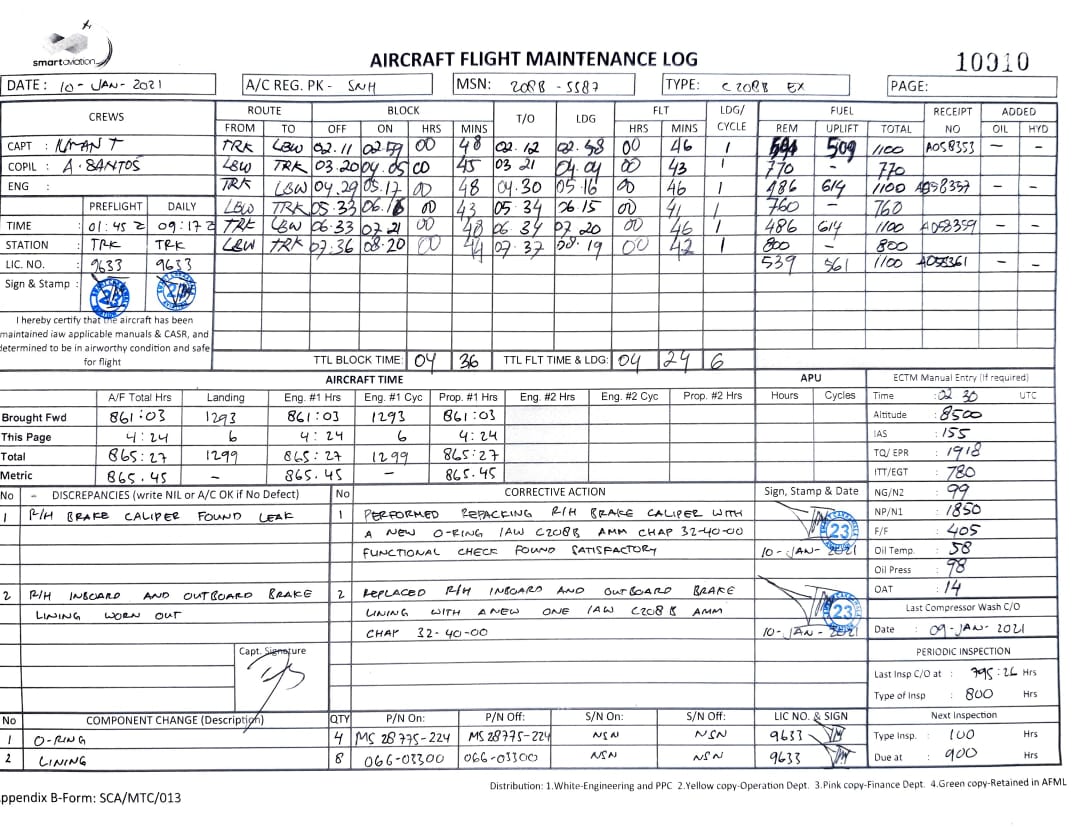 smartaviation
AIRCRAFT FLIGHT MAINTENANCE LOG
10910
DATE : 10 - JAN - 2021 A/C REG. PK - SNH MSN: 208B - 5587 TYPE: C208B EX PAGE:
CREWS ROUTE BLOCK T/O LDG FLT LDG/ CYCLE FUEL RECEIPT NO ADDED
FROM TO OFF ON HRS MINS HRS MINS REM UPLIFT TOTAL OIL HYD
CAPT : TRK LBW 02.11 02.59 00 48 02.12 02.58 00 46 1 509 1100 A058353 - -
COPIL : A. SANTOS LBW TRK 03.20 04.05 00 45 03 21 04.04 00 43 1 770 - 770
ENG : TRK LBW 04.29 05.17 00 48 04.30 05.16 00 46 1 486 614 1100 A058357 - -
PREFLIGHT DAILY LBW TRK 05.33 06.16 00 43 05.34 06 15 00 41 1 760 - 760
TIME : 01:45 Z 09:17 Z TRK LBW 06.33 07.21 00 48 06 34 07 20 00 46 1 486 614 1100 A058359 - -
STATION : TRK TRK LBW TRK 07.36 08.20 00 44 07.37 08.19 00 42 1 800 - 800
LIC. NO. : 9633 9633 539 561 1100 A058361 - -
Sign & Stamp :
I hereby certify that the aircraft has been
maintained iaw applicable manuals & CASR, and
determined to be in airworthy condition and safe
for flight TTL BLOCK TIME: 04 36 TTL FLT TIME & LDG: 04 24 6
AIRCRAFT TIME APU ECTM Manual Entry (If required)
A/F Total Hrs Landing Eng. #1 Hrs Eng. #1 Cyc Prop. #1 Hrs Eng. #2 Hrs Eng. #2 Cyc Prop. #2 Hrs Hours Cycles Time : 02 30 UTC
Brought Fwd 861:03 1293 861:03 1293 861:03 Altitude : 8500
This Page 4:24 6 4:24 6 4:24 IAS : 155
Total 865:27 1299 865:27 1299 865:27 TQ/ EPR : 1918
Metric 865.45 - 865.45 - 865.45 ITT/EGT : 780
No - DISCREPANCIES (write NIL or A/C OK if No Defect) No CORRECTIVE ACTION Sign, Stamp & Date NG/N2 : 99
1 R/H BRAKE CALIPER FOUND LEAK 1 PERFORMED REPACKING R/H BRAKE CALIPER WITH NP/N1 : 1850
A NEW O-RING IAW C208B AMM CHAP 32-40-00 23 F/F : 405
FUNCTIONAL CHECK FOUND SATISFACTORY 10 - JAN - 2021 Oil Temp. : 58
Oil Press : 98
2 R/H INBOARD AND OUTBOARD BRAKE 2 REPLACED R/H INBOARD AND OUTBOARD BRAKE OAT : 14
LINING WORN OUT LINING WITH A NEW ONE IAW C208B AMM 23 Last Compressor Wash C/O
CHAP 32-40-00 10 - JAN - 2021 Date : 09-JAN-2021
Capt. Signature PERIODIC INSPECTION
Last Insp C/O at : 795:26 Hrs
Type of Insp : 800 Hrs
No COMPONENT CHANGE (Description) QTY P/N On: P/N Off: S/N On: S/N Off: LIC NO. & SIGN Next Inspection
1 O-RING 4 MS 28775-224 MS 28775-224 NSN NSN 9633 Type Insp. : 100 Hrs
2 LINING 8 066-03300 066-03300 NSN NSN 9633 Due at : 900 Hrs
Distribution: 1.White-Engineering and PPC 2.Yellow copy-Operation Dept. 3.Pink copy-Finance Dept. 4.Green copy-Retained in AFML
ppendix B-Form: SCA/MTC/013